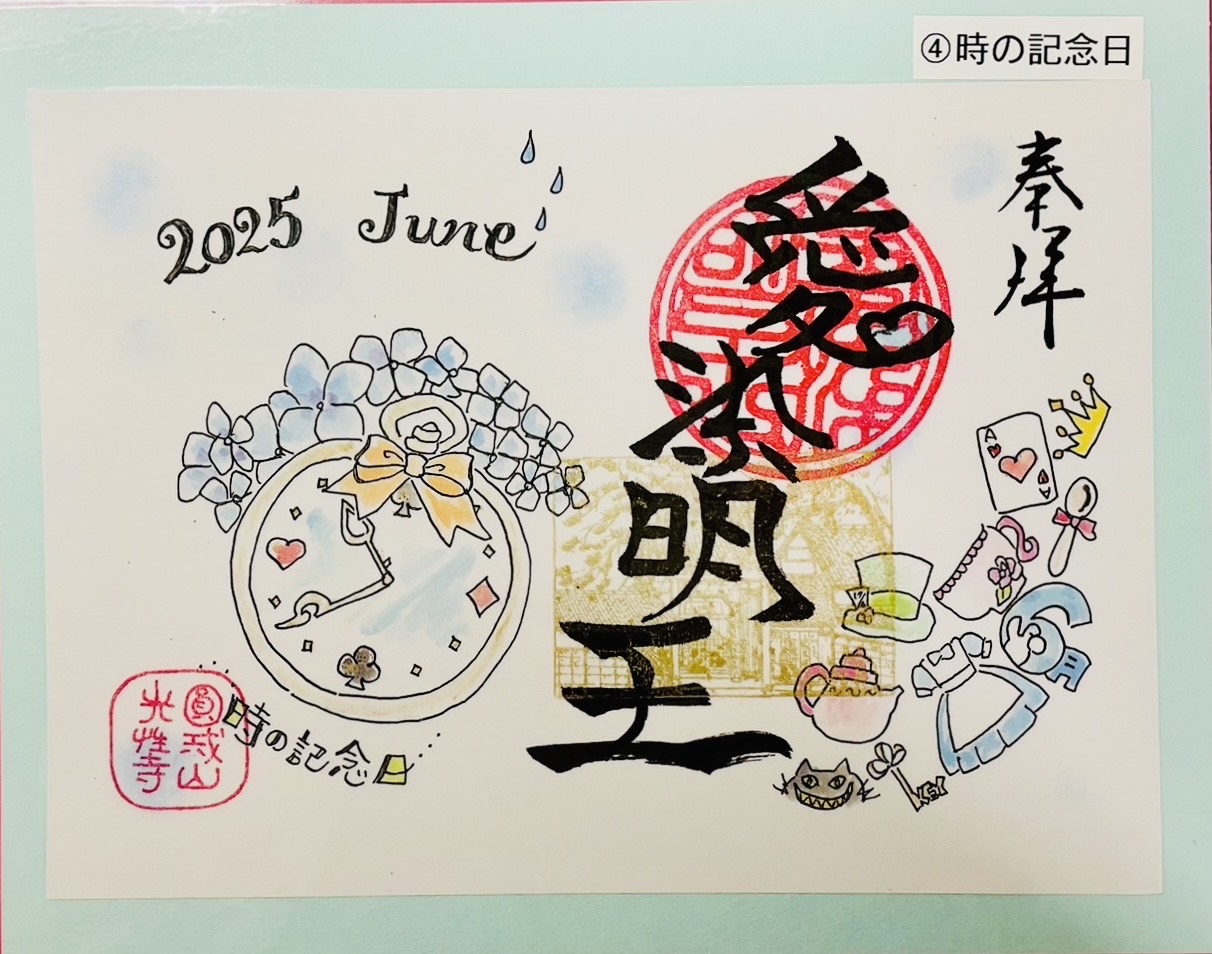 ④時の記念日
奉拝
愛染明王
2025 June
A
A
10/6
6月
KEY
時の記念日
圓戒山
光性寺